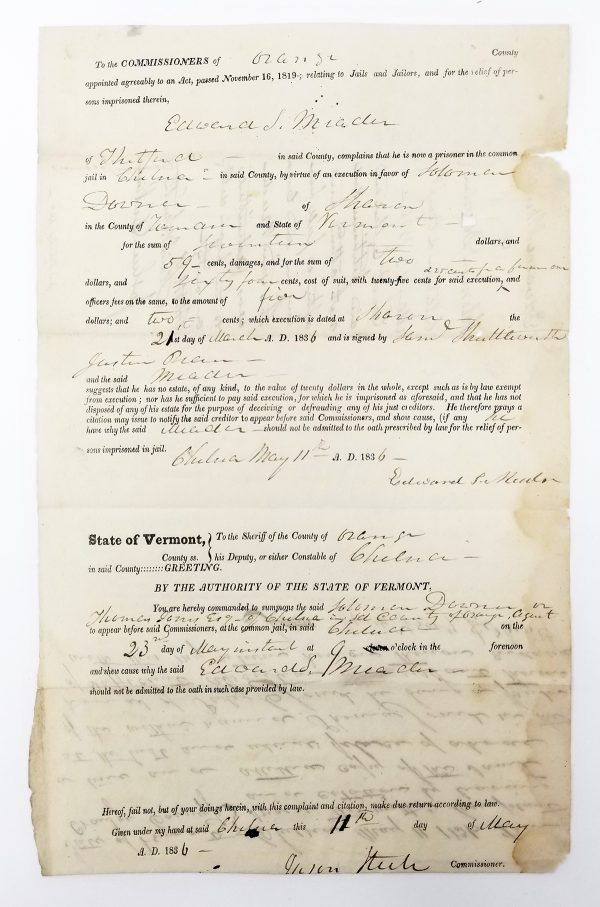 To the COMMISSIONERS of Orange County
appointed agreeably to an Act, passed November 16, 1819; relating to Jails and Jailors, and for the relief of per-
sons imprisoned therein,
Edward S. Meader
of Thetford in said County, complains that he is now a prisoner in the common
jail in Chelsea in said County, by virtue of an execution in favor of Solomon
Downer of Sharon
in the County of and State of Vermont
for the sum of seventeen dollars, and
59 cents, damages, and for the sum of two
dollars, and sixty four cents, cost of suit, with twenty-five cents for said execution, and
officers fees on the same, to the amount of five
dollars; and two cents; which execution is dated at Sharon the
21st day of March A. D. 1836 and is signed by Saml Shuttleworth
Justice Peace
and the said Meader
suggests that he has no estate, of any kind, to the value of twenty dollars in the whole, except such as is by law exempt
from execution; nor has he sufficient to pay said execution, for which he is imprisoned as aforesaid, and that he has not
disposed of any of his estate for the purpose of deceiving or defrauding any of his just creditors. He therefore prays a
citation may issue to notify the said creditor to appear before said Commissioners, and shew cause, (if any he
have why the said Meader should not be admitted to the oath prescribed by law for the relief of per-
sons imprisoned in jail.
Chelsea May 11th A. D. 1836
Edward S. Meader
State of Vermont, } To the Sheriff of the County of Orange
County ss. his Deputy, or either Constable of Chelsea
in said County::::::::GREETING.
BY THE AUTHORITY OF THE STATE OF VERMONT,
You are hereby commanded to summons the said Solomon Downer or
Thomas Jones Esq of Chelsea in sd County of Orange, agent
to appear before said Commissioners, at the common jail, in said Chelsea on the
23rd day of May instant at 9 o'clock in the forenoon
and shew cause why the said Edward S. Meader
should not be admitted to the oath in such case provided by law.
Hereof, fail not, but of your doings herein, with this complaint and citation, make due return according to law.
Given under my hand at said Chelsea this 11th day of May
A. D. 1836
Jason Steele Commissioner.